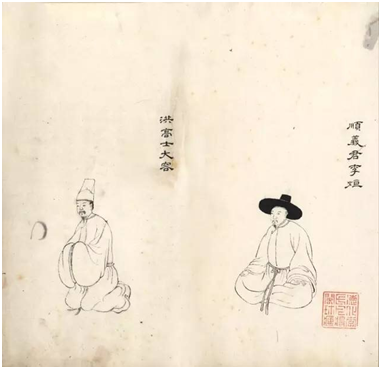 順義君李烜
洪高士大容